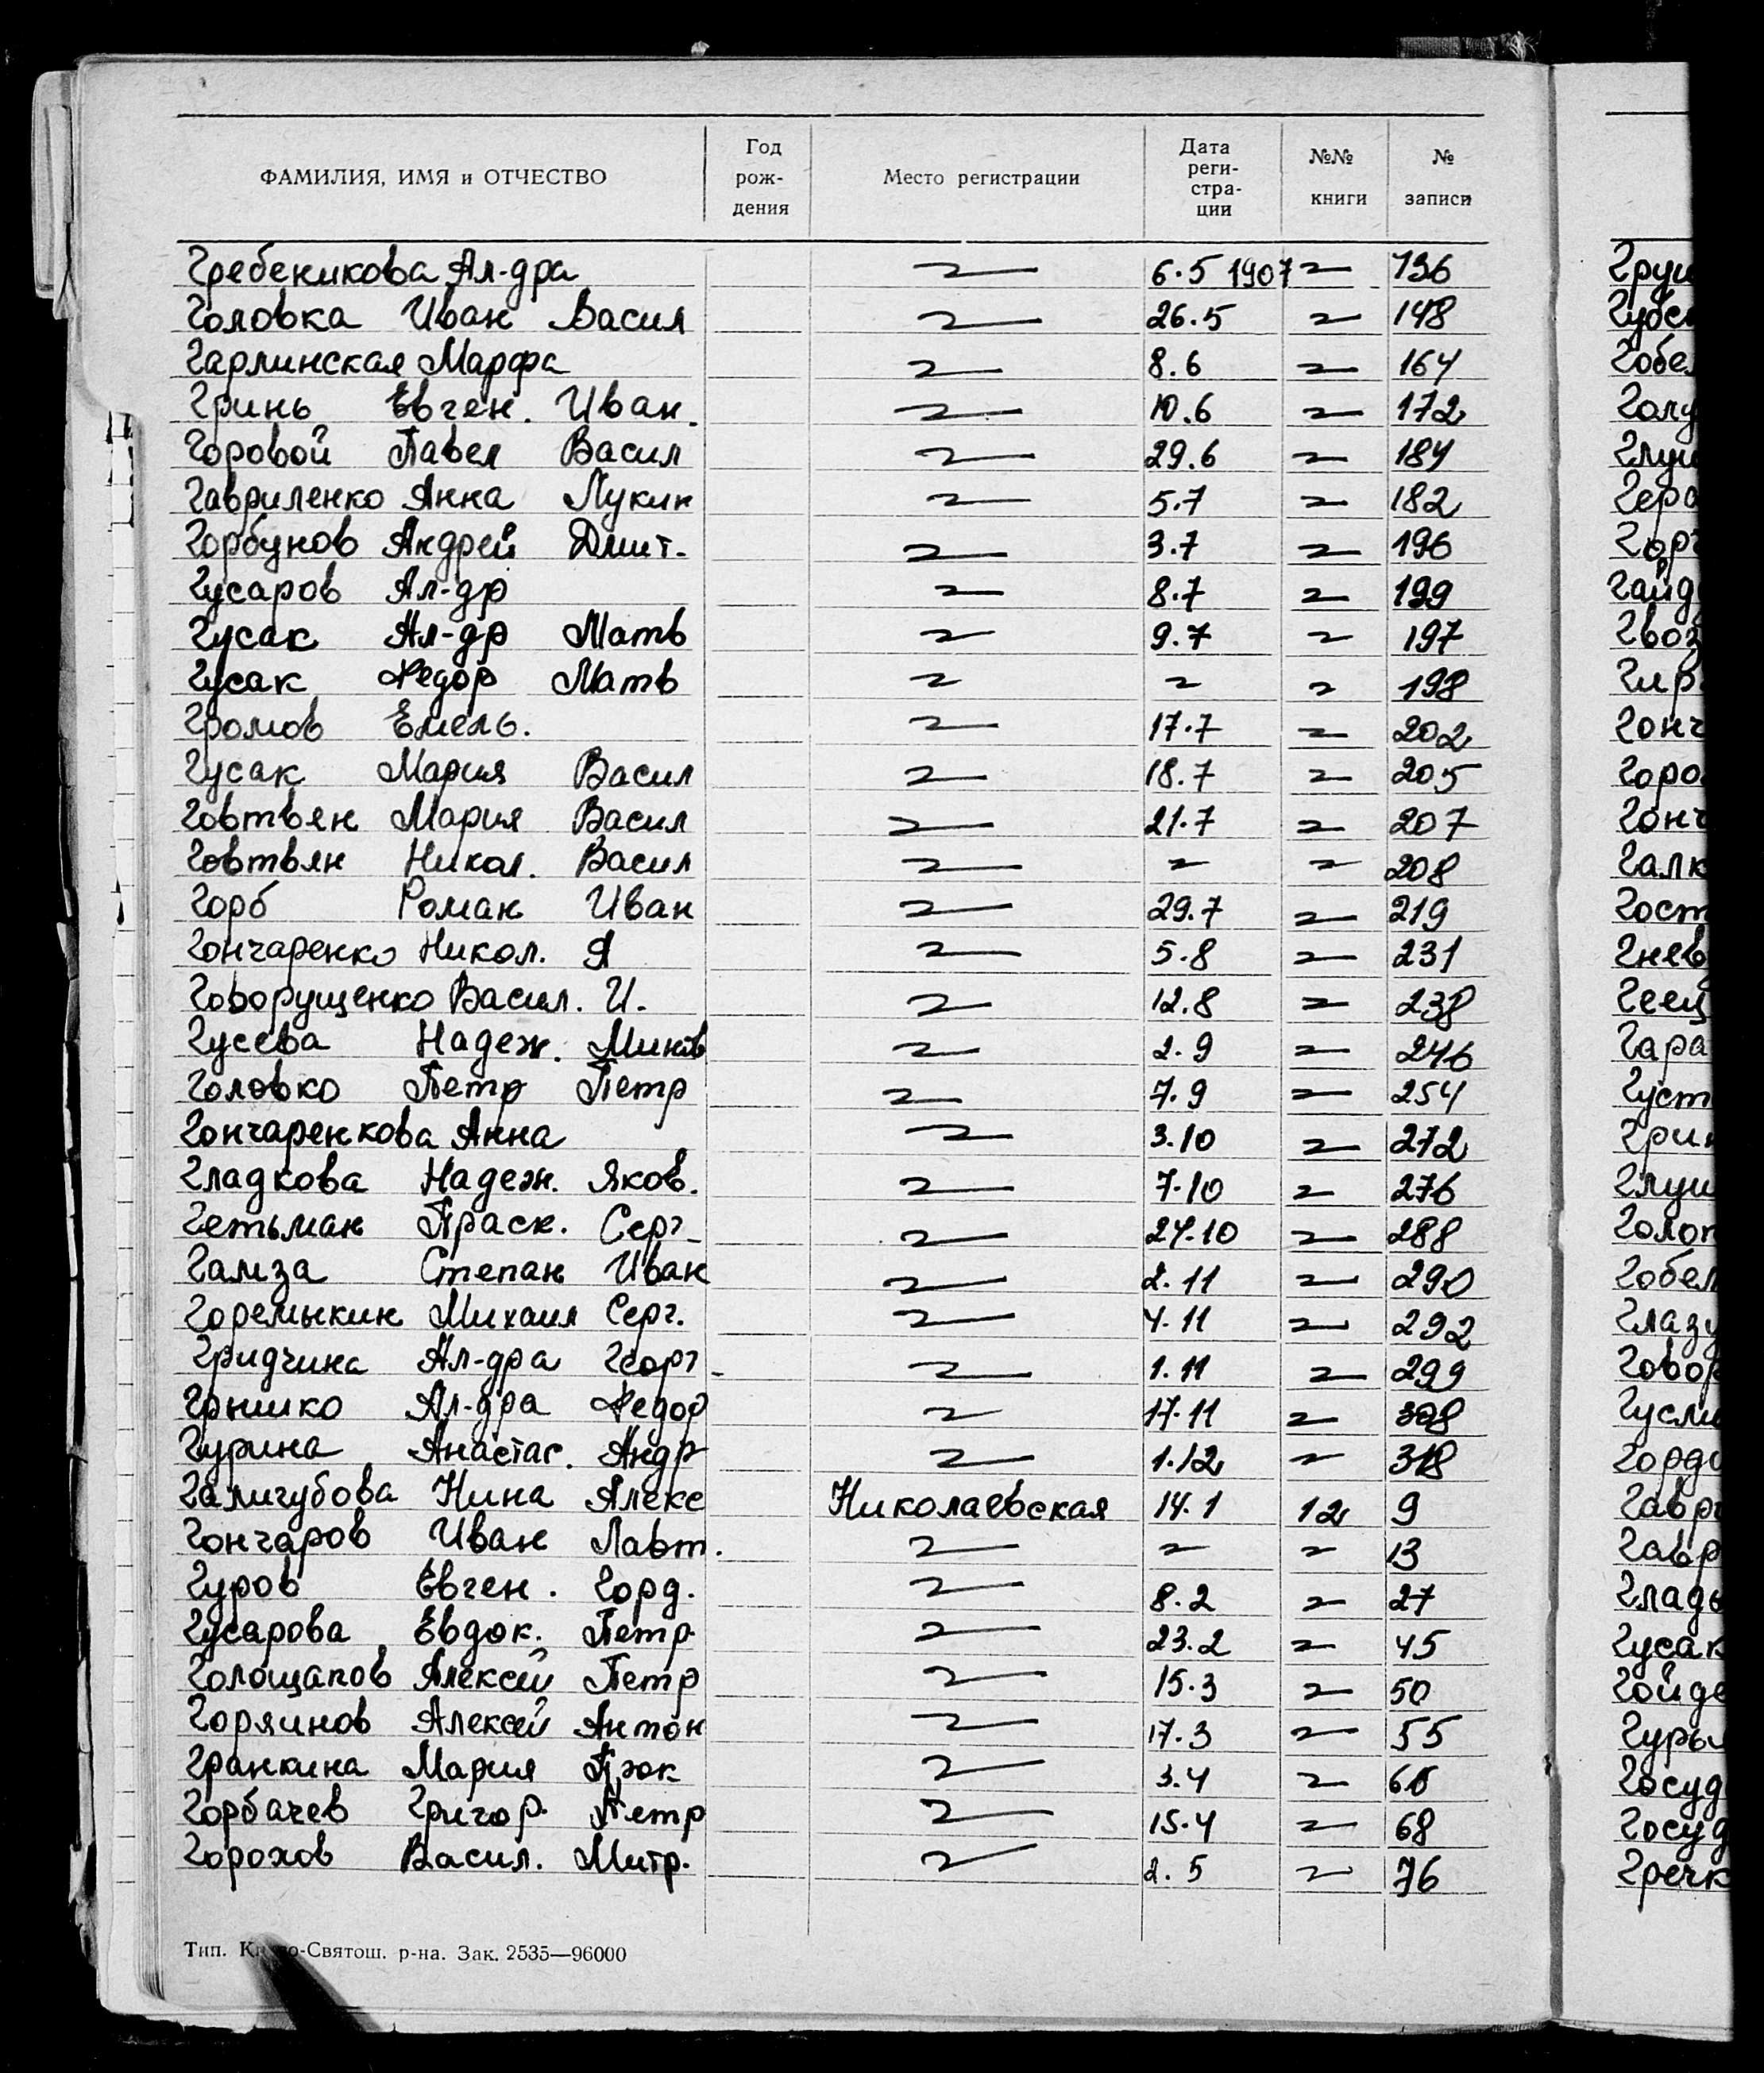 ФАМИЛИЯ, ИМЯ и ОТЧЕСТВО Год рождения Место регистрации Дата регистрации №№ книги № записи
Гребеникова Ал-дра 〃 6.5 1907 〃 136
Головка Иван Васил 〃 26.5 〃 148
Гарлинская Марфа 〃 8.6 〃 164
Гринь Евген. Иван. 〃 10.6 〃 172
Горовой Павел Васил 〃 29.6 〃 184
Гавриленко Анна Лукин 〃 5.7 〃 182
Горбунов Андрей Дмит. 〃 3.7 〃 196
Гусаров Ал-др 〃 8.7 〃 199
Гусак Ал-др Матв 〃 9.7 〃 197
Гусак Федор Матв 〃 〃 〃 198
Громов Емель. 〃 17.7 〃 202
Гусак Мария Васил 〃 18.7 〃 205
Говтвян Мария Васил 〃 21.7 〃 207
Говтвян Никол. Васил 〃 〃 〃 208
Горб Роман Иван 〃 29.7 〃 219
Гончаренко Никол. Я 〃 5.8 〃 231
Говорущенко Васил. И. 〃 12.8 〃 238
Гусева Надеж. 〃 2.9 〃 246
Головко Петр Петр 〃 7.9 〃 254
Гончаренкова Анна 〃 3.10 〃 272
Гладкова Надеж. Яков. 〃 7.10 〃 276
Гетьман Праск. Серг 〃 24.10 〃 288
Гамза Степан Иван 〃 2.11 〃 290
Горемыкин Михаил Серг. 〃 4.11 〃 292
Гридчина Ал-дра Георг 〃 1.11 〃 299
Грышко Ал-дра Федор 〃 17.11 〃
Гурина Анастас. Андр 〃 1.12 〃 318
Галигубова Нина Алекс Николаевская 14.1 12 9
Гончаров Иван Лавт. 〃 〃 〃 13
Гуров Евген. Горд. 〃 8.2 〃 27
Гусарова Евдок. Петр 〃 23.2 〃 45
Голощапов Алексей Петр 〃 15.3 〃 50
Горяинов Алексей Антон 〃 17.3 〃 55
Гранкина Мария Прок 〃 3.4 〃
Горбачев Григор. Петр 〃 15.4 〃 68
Горохов Васил. Митр. 〃 2.5 〃 76
Тип. Киево-Святош. р-на. Зак. 2535—96000